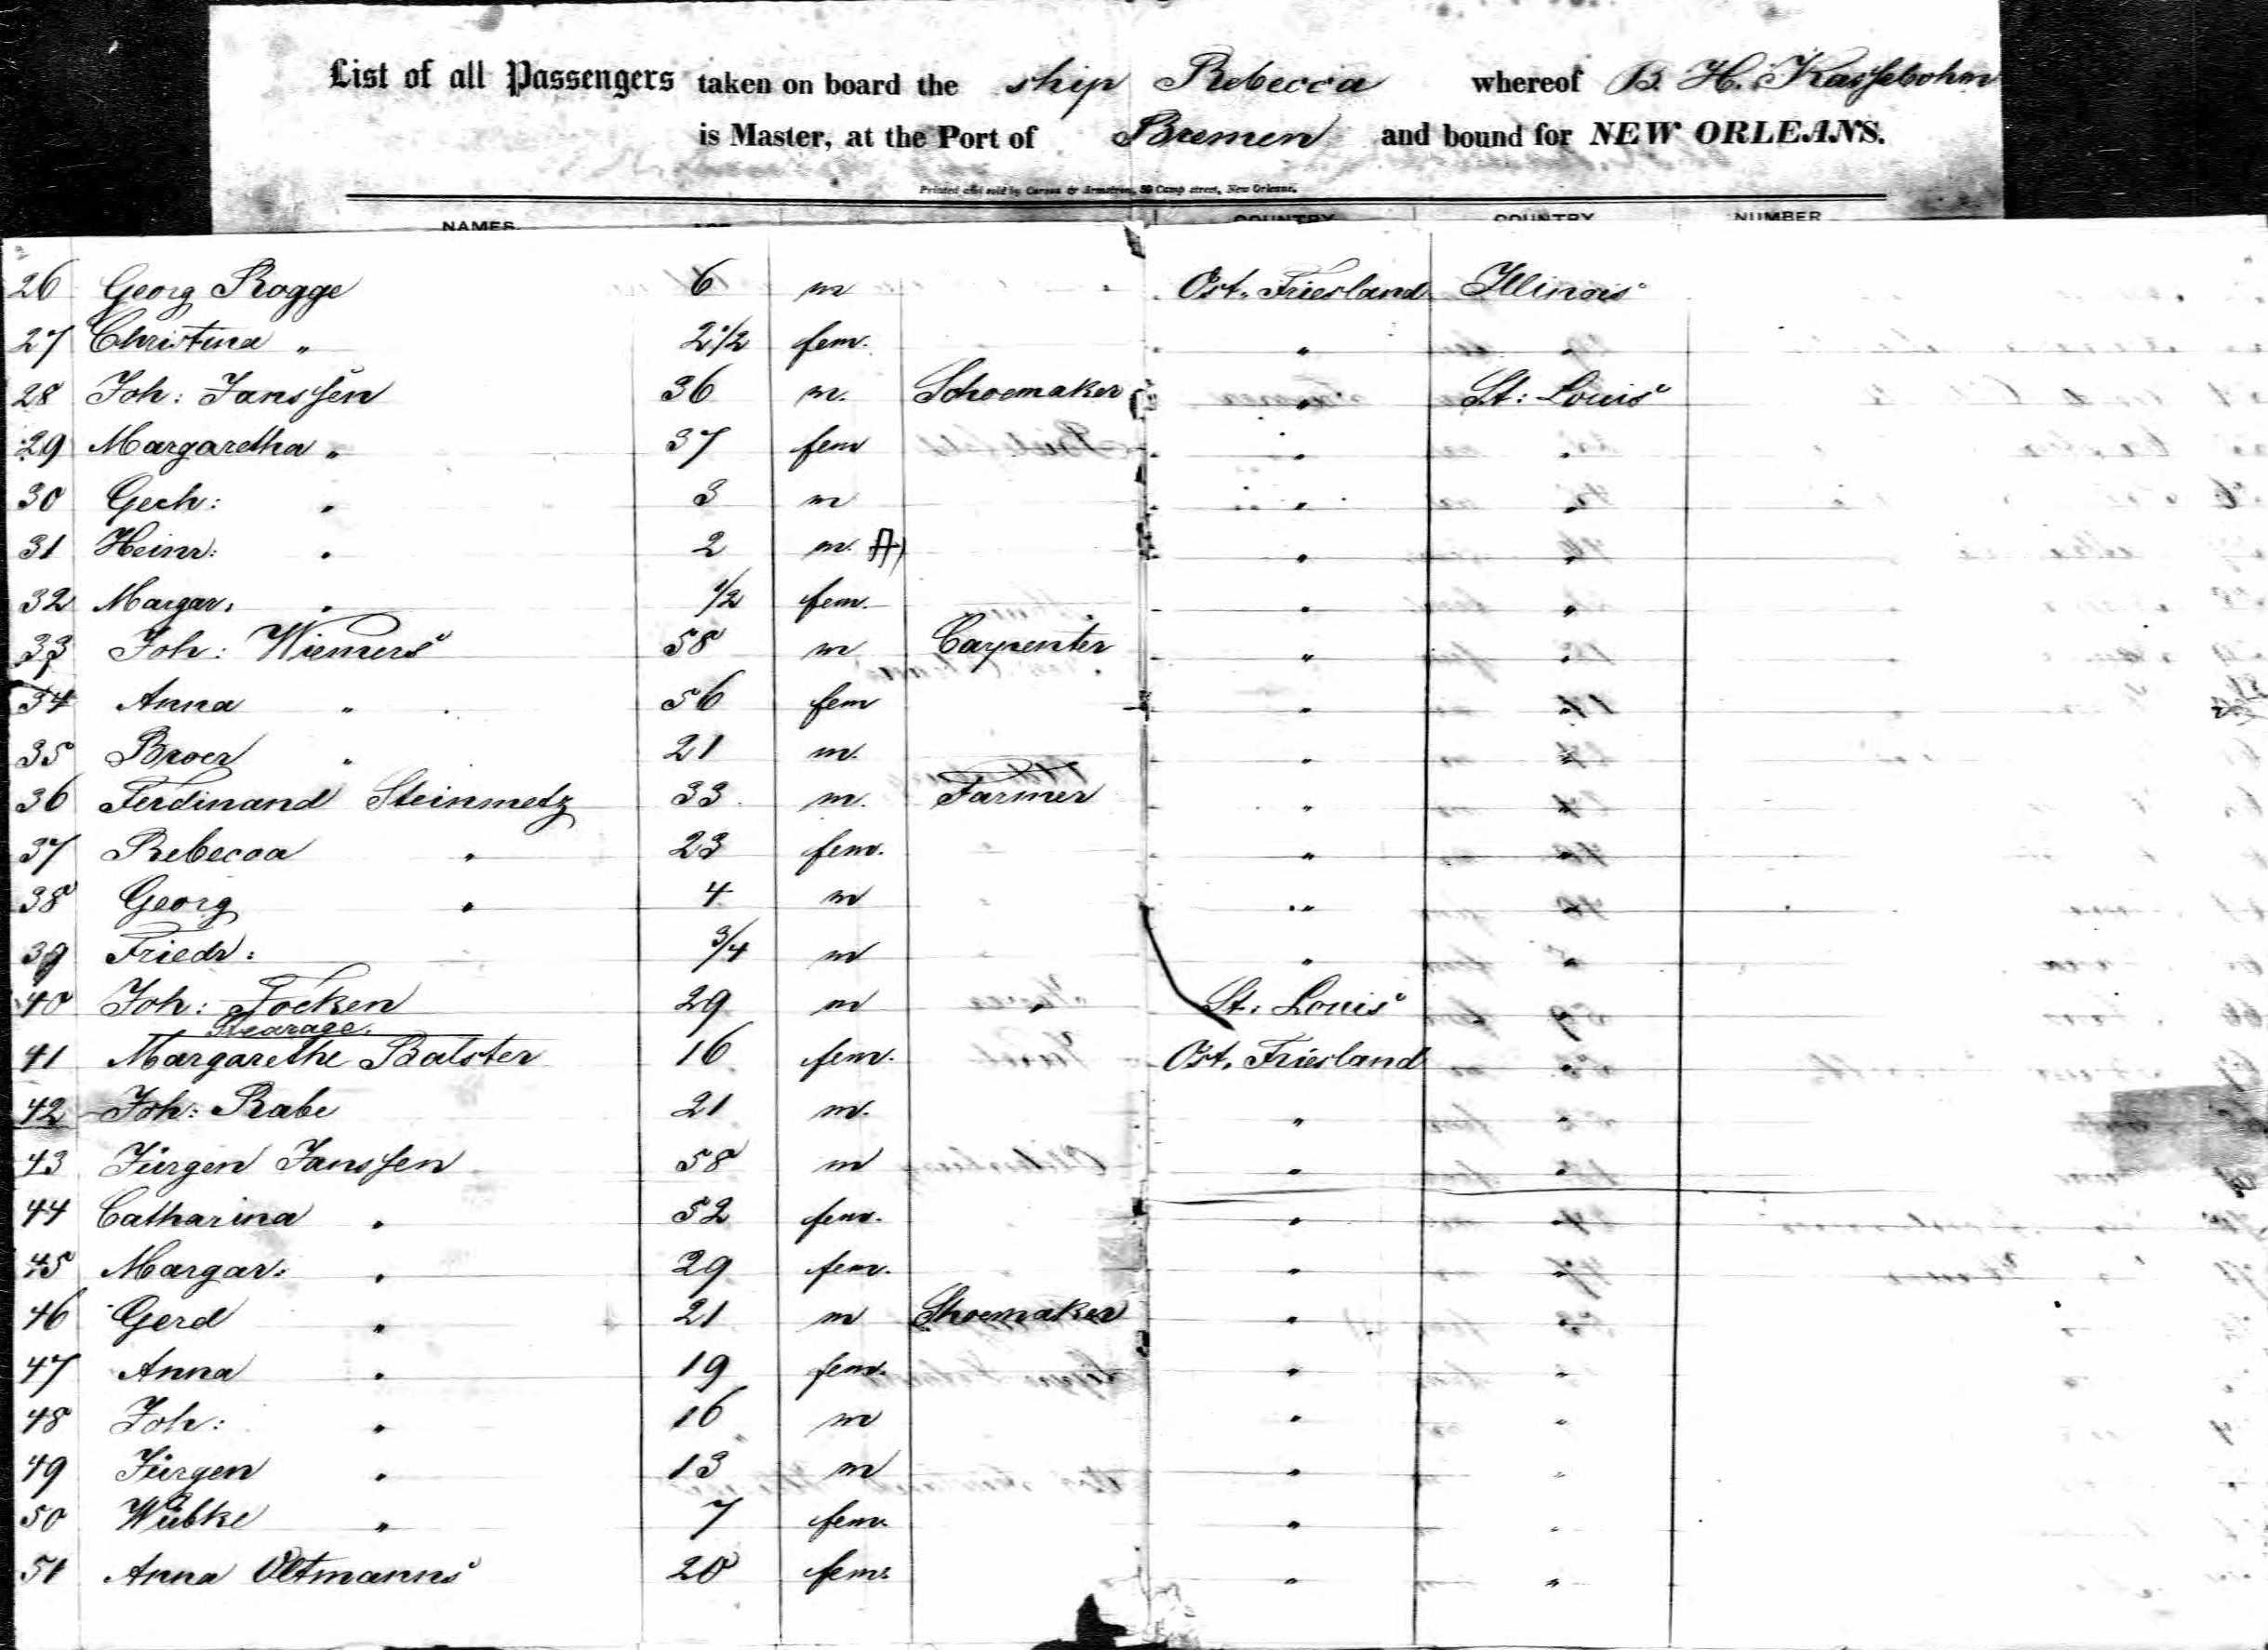 List of all Passengers taken on board the ship Rebecca whereof B. H. Kassebohm
is Master, at the Port of Bremen and bound for NEW ORLEANS.
Printed and sold by Carson & Armstrong, 50 Camp street, New Orleans.
NAMES. AGE COUNTRY COUNTRY NUMBER
26 Georg Rogge 6 m Ost. Friesland Illinois
27 Christina " 2 1/2 fem. " "
28 Joh: Janssen 36 m. Schoemaker " St: Louis
29 Margaretha " 37 fem " "
30 Gerh: " 3 m " "
31 Heinr: " 2 m. " "
32 Margar: " 1/2 fem. " "
33 Joh: Wiemers 58 m Carpenter " "
34 Anna " 56 fem " "
35 Broer " 21 m. " "
36 Ferdinand Steinmetz 33 m. Farmer " "
37 Rebecca " 23 fem. " "
38 Georg " 4 m " "
39 Friedr: 3/4 m " "
40 Joh: Focken 29 m " St: Louis
Stearage.
41 Margarethe Balster 16 fem. Ost. Friesland
42 Joh: Rabe 21 m. " "
43 Jürgen Janssen 58 m " "
44 Catharina " 52 fem. " "
45 Margar: " 29 fem. " "
46 Gerd " 21 m Shoemaker " "
47 Anna " 19 fem. " "
48 Joh: " 16 m " "
49 Jürgen " 13 m " "
50 Wübke " 7 fem. " "
51 Anna Oltmanns 20 fem. " "